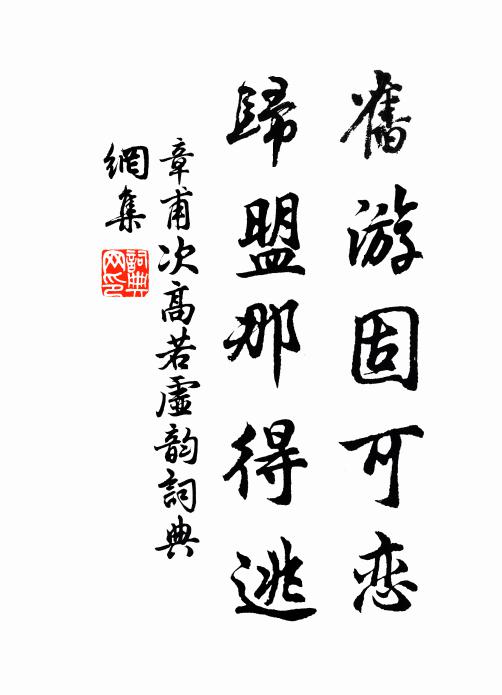 舊游固可恋
歸盟那得逃
章甫次高若虛韵詞典
網集
詞典网印